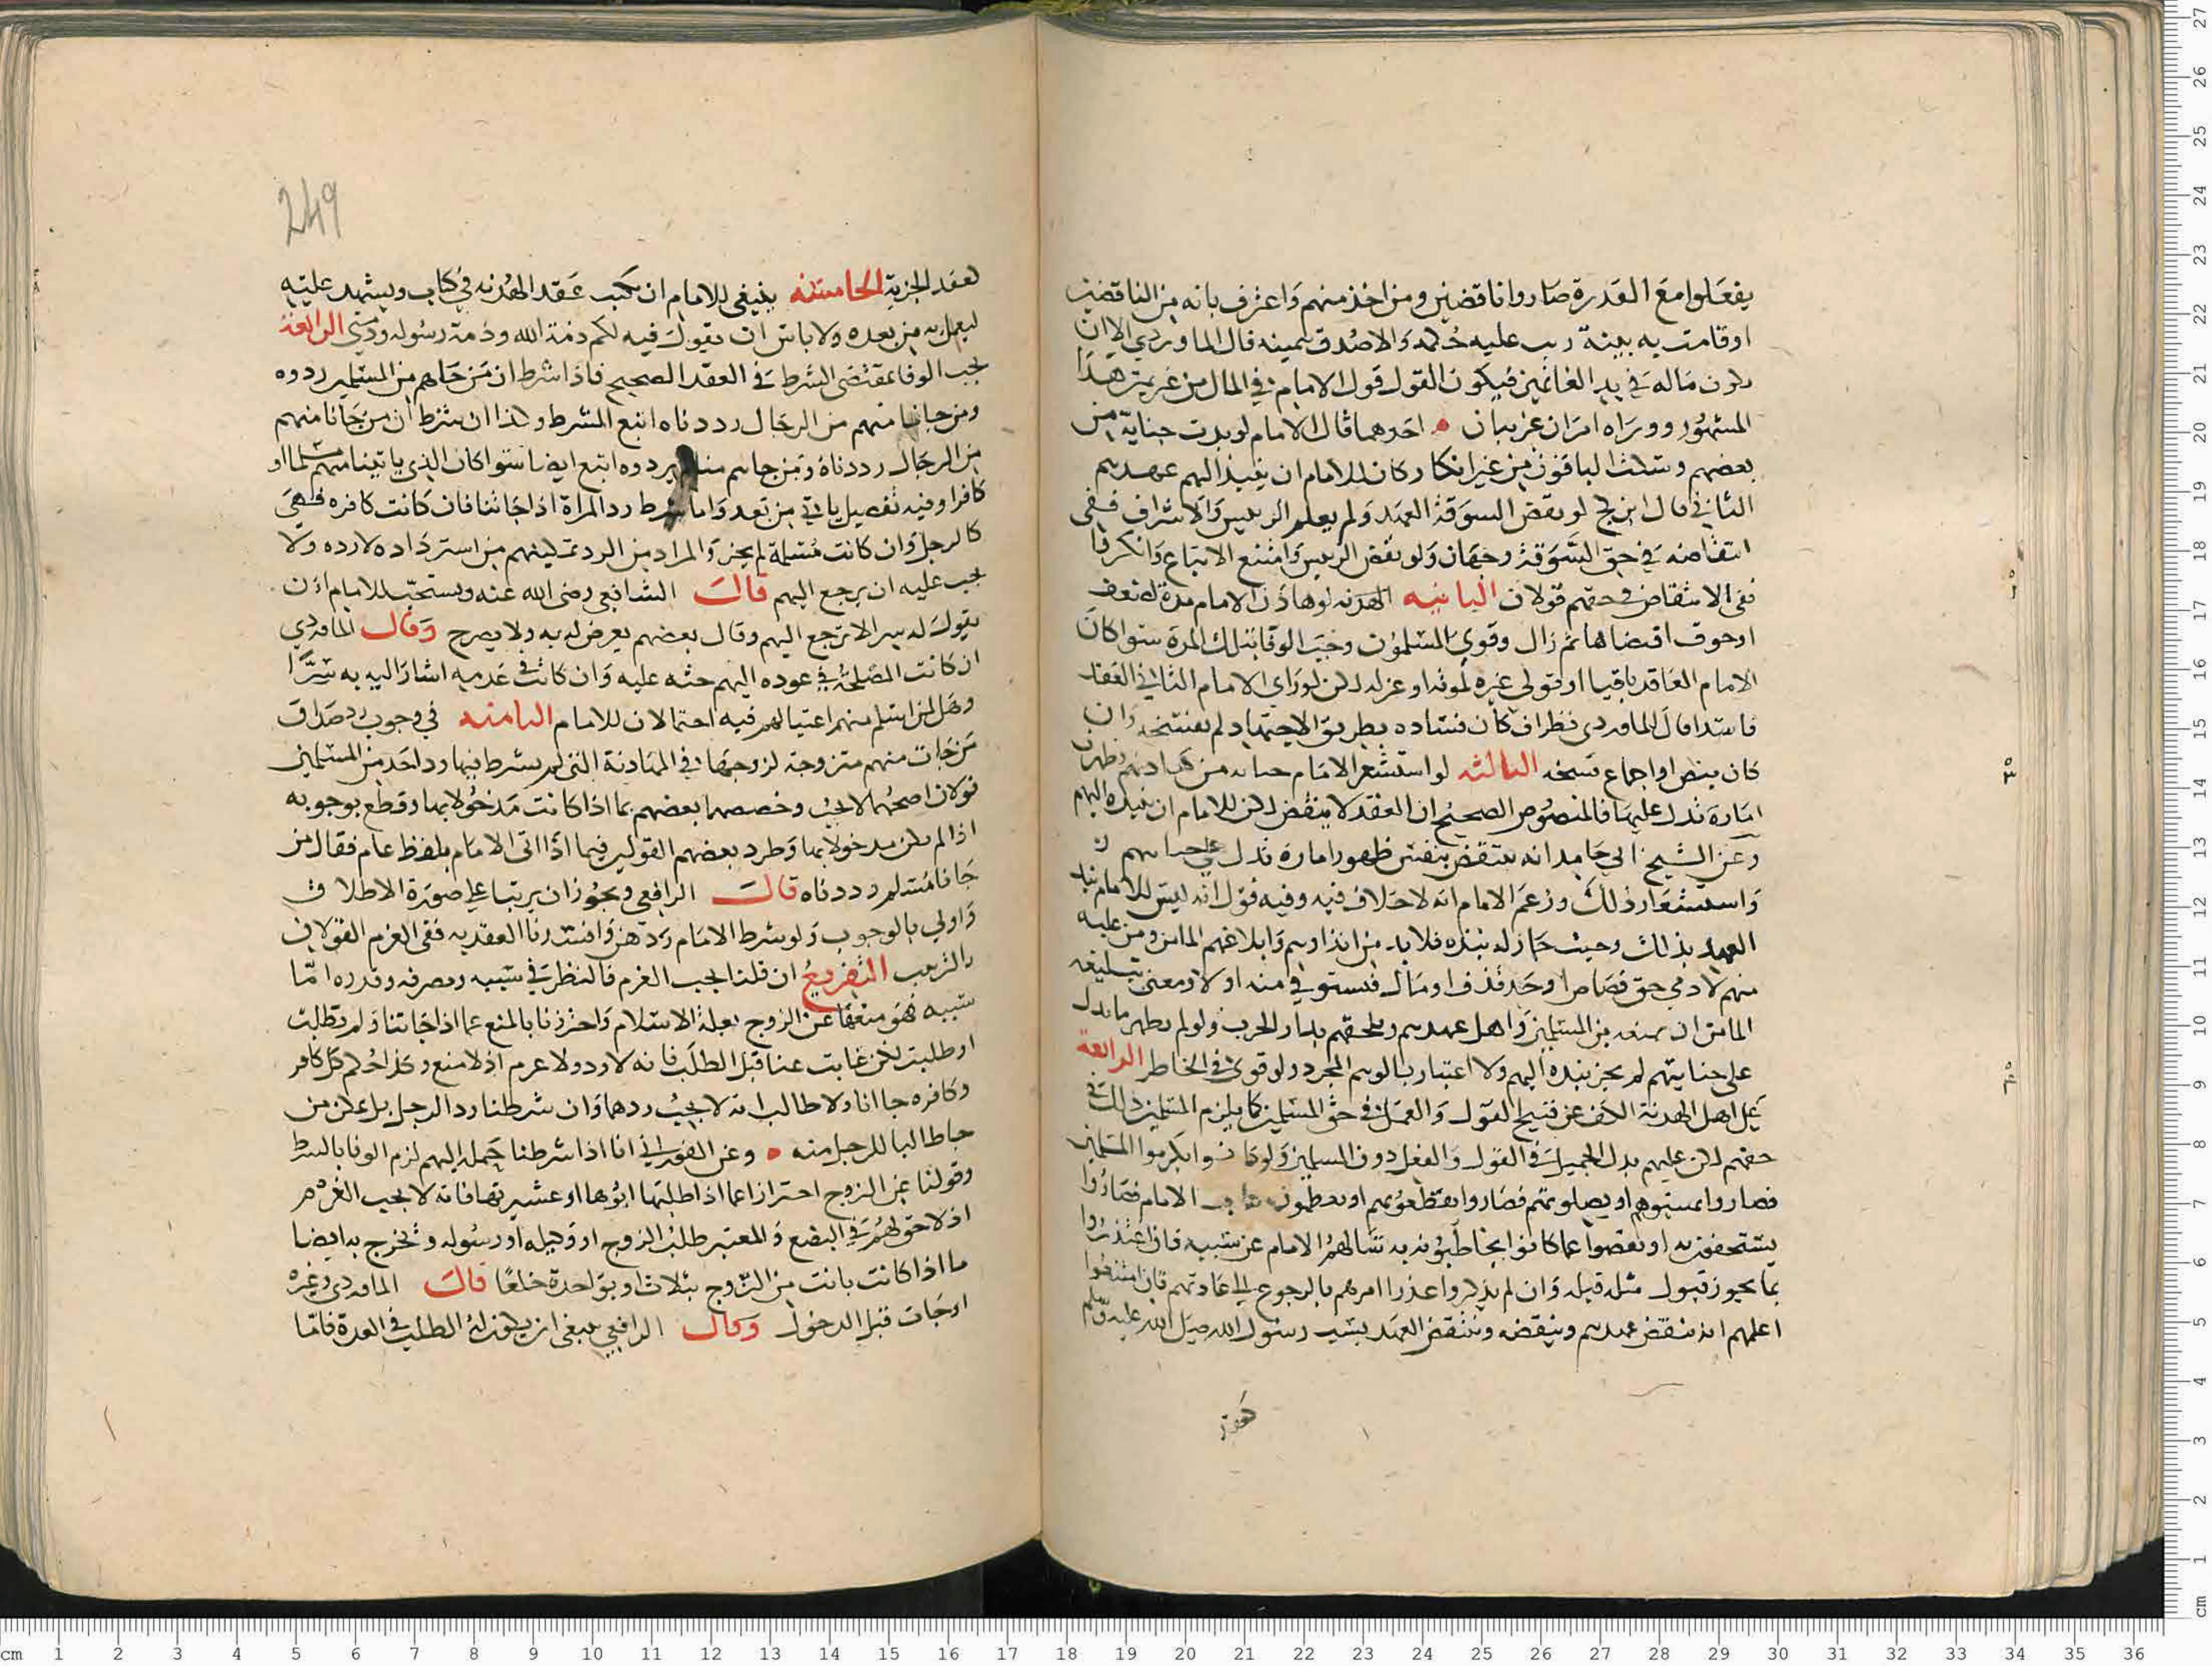 يفعلوا مع القدرة صاروا ناقضين ومن اخذ منهم واعترف بانه من الناقضين
او قامت به بينة رتب عليه حكمه والا صدق بيمينه قال الماوردي الا ان
يكون ماله في يد الغانمين فيكون القول قول الامام في المال من غريمه هذا
المشهور ووراه امران غريبان احدهما قال الامام لو بدت جناية من
بعضهم وسكت الباقون من غير انكار كان للامام ان ينبذ اليهم عهدهم
الثاني قال ابن كج لو نقض السوقة العهد ولم يعلم الرئيس والاشراف ففي
انتقاضه في حق السوقة وجهان ولو نقض الرئيس وامتنع الاتباع وانكروا
ففي الانتقاض في حقهم قولان الثانيه الهدنه لو هادن الامام مدة لضعف
او خوف اقتضاها ثم زال وقوي المسلمون وجب الوفا بتلك المدة سوا كان
الامام العاقد باقيا او تولى غيره لموته او عزله لكن لو راى الامام الثاني العقد
فاسدا قال الماوردي نظر ان كان فساده بطريق الاجتهاد لم يفسخه وان
كان بنص او اجماع فسخه الثالثه لو استشعر الامام خيانه من
امارة تدل عليها فالمنصوص الصحيح ان العقد لا ينتقض لكن للامام ان ينبذه اليهم
وعن الشيخ ابي حامد انه ينتقض بنفس ظهور امارة تدل على خيانتهم
واستشعار ذلك وزعم الامام انه لا خلاف فيه وفيه قول انه ليس للامام نبذ
العهد بذلك وحيث جاز له نبذه فلا بد من انذارهم وابلاغهم المامن ومن عليه
منهم لادمي حق قصاص او حد قذف او مال فيستوفي منه اولا ومعنى تبليغه
المامن ان يمنعه من المسلمين واهل عهدهم ويلحقهم بدار الحرب ولو لم يظهر ما يدل
على خيانتهم لم يجز نبذه اليهم ولا اعتبار بالوهم المجرد ولو قوي في الخاطر الرابعة
على اهل الهدنة الكف عن قبيح القول والعمل في حق المسلمين كما يلزم المسلمين ذلك في
حقهم لكن عليهم بذل الجميل في القول والفعل دون المسلمين ولو كانوا يكرموا المسلمين
فصاروا يسبوهم او يصلونهم فصاروا يقطعونهم او يعظمون الامام فصاروا
يستخفون به او نقصوا عما كانوا يخاطبونه به سالهم الامام عن سببه فان اعتذروا
بما يجوز قبول مثله قبله وان لم يذكروا عذرا امرهم بالرجوع الى عادتهم فان امتنعوا
اعلمهم انه ينقض عهدهم وينقضه وينتقض العهد بسب رسول الله صلى الله عليه وسلم
كعقد
249
كعقد الجزية الخامسة ينبغي للامام ان يكتب عقد الهدنه في كتاب ويشهد عليه
ليعمل به من بعده ولا باس ان يقول فيه لكم ذمة الله وذمة رسوله وذمتي الرابعة
يجب الوفا بمقتضى الشرط في العقد الصحيح فاذا شرط ان من جاهم من المسلمين ردوه
ومن جانا منهم من الرجال رددناه اتبع الشرط وكذا ان شرط ان من جانا منهم
من الرجال رددناه ومن جاهم منا لم يردوه اتبع ايضا سوا كان الذي ياتينا منهم مسلما او
كافرا وفيه تفصيل ياتي من بعد واما شرط رد المراة اذا جاتنا فان كانت كافره فهي
كالرجل وان كانت مسلمة لم يجز والمراد من الرد تمكينهم من استرداده لا رده ولا
يجب عليه ان يرجع اليهم قال الشافعي رضى الله عنه ويستحب للامام ان
يقول له سرا لا ترجع اليهم وقال بعضهم يعرض له به ولا يصرح وقال الماوردي
ان كانت المصلحة في عوده اليهم حثه عليه وان كانت في عدمه اشار اليه به سرا
وهل لمن اسلم منهم اغتيالهم فيه احتمالان للامام الثامنه في وجوب رد صداق
من جات منهم متزوجة لزوجها في المهادنة التي لم يشرط فيها رد احد من المسلمين
قولان اصحهما لا يجب وخصصهما بعضهم بما اذا كانت مدخولا بها وقطع بوجوبه
اذا لم يكن مدخولا بها وطرد بعضهم القولين فيما اذا اتى الامام بلفظ عام فقال من
جانا مسلم رددناه قال الرافعي ويجوز ان يرتبا على صورة الاطلاق
واولى بالوجوب ولو شرط الامام ردهن وافسدنا العقد به ففي الغرم القولان
بالترتيب التفريع ان قلنا يجب الغرم فالنظر في سببه ومصرفه وقدره اما
سببه فهو منعها عن الزوج بعلة الاسلام واحترزنا بالمنع عما اذا جاتنا ولم تطلب
او طلبت لكن غابت عنا قبل الطلب فانه لا رد ولا غرم اذ لا منع وكذا حكم كل كافر
وكافره جاانا ولا طالب انه لا يجب ردهما وان شرطنا رد الرجل بل يمكن من
جا طالبا للرجل منه وعن الفوراني انا اذا شرطنا حمله اليهم لزم الوفا بالشرط
وقولنا عن الزوج احترازا عما اذا طلبها ابوها او عشيرتها فانه لا يجب الغرم
اذ لا حق لهم في البضع والمعتبر طلب الزوج او وكيله او رسوله ونخرج به ايضا
ما اذا كانت بانت من الزوج بثلاث او بواحدة خلعا قال الماوردي وغيره
او جات قبل الدخول وقال الرافعي ينبغي ان يكون له الطلب في العدة فاما